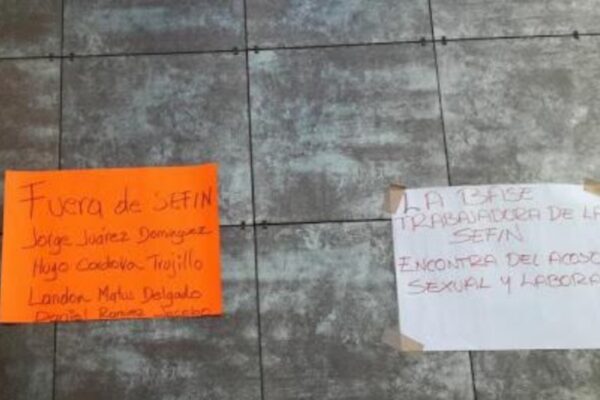 Fuera de SEFIN
Jorge Juárez Dominguez
Hugo Cordova Trujillo
Landon Matus Delgado
Daniel Ramirez
LA BASE
TRABAJADORA DE LA
SEFIN
ENCONTRA DEL ACOSO
SEXUAL Y LABORA